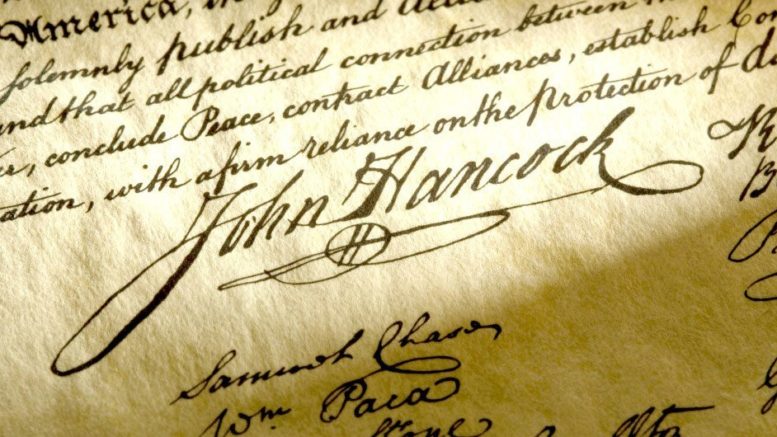 America, in
solemnly publish and
and that all political connection between
conclude Peace, contract Alliances, establish
ation, with a firm reliance on the protection of
John Hancock
Samuel Chase
Wm Paca